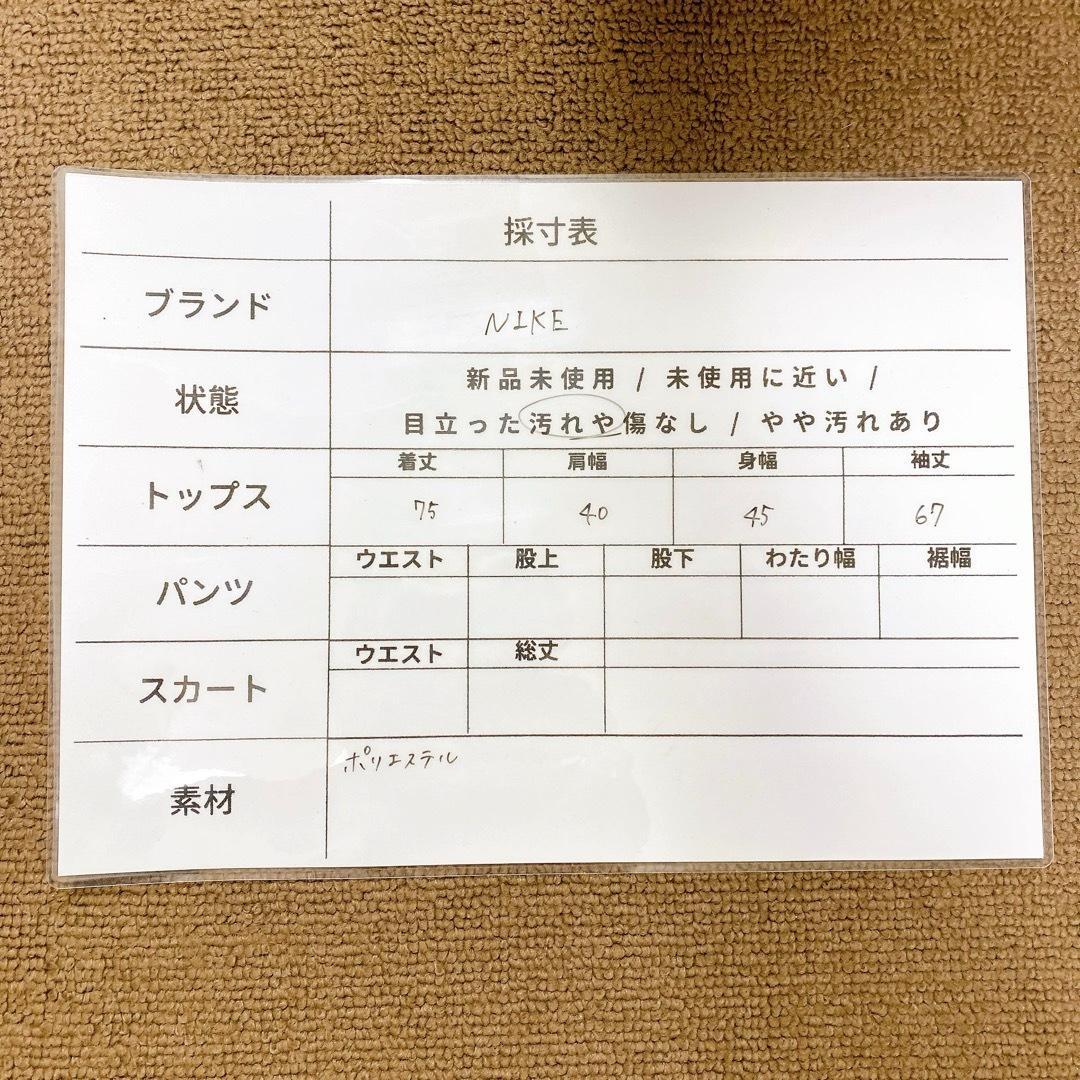 採寸表
ブランド
NIKE
状態
新品未使用 / 未使用に近い /
目立った汚れや傷なし / やや汚れあり
トップス
着丈 肩幅 身幅 袖丈
75 40 45 67
パンツ
ウエスト 股上 股下 わたり幅 裾幅
スカート
ウエスト 総丈
素材
ポリエステル